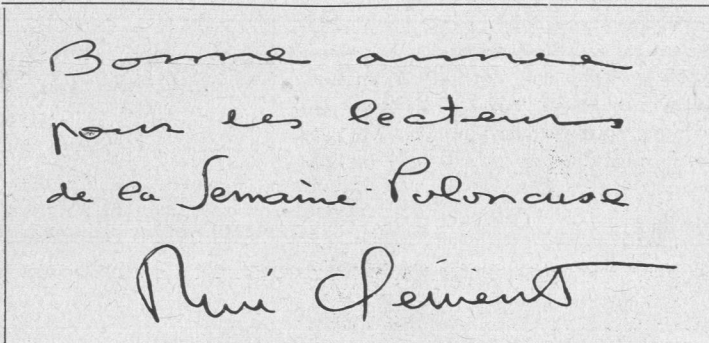 Bonne année
pour les lecteurs
de la Semaine Polonaise
René Clément